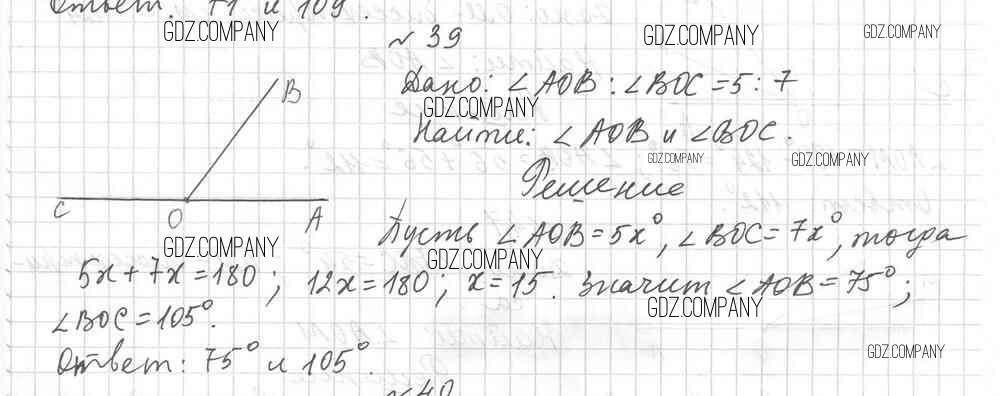 Ответ: 71 и 109.
GDZ.COMPANY
№ 39
GDZ.COMPANY
GDZ.COMPANY
Дано: ∠AOB : ∠BOC = 5 : 7
B
GDZ.COMPANY
Найти: ∠AOB и ∠BOC.
GDZ.COMPANY
GDZ.COMPANY
Решение
C
O
A
Пусть ∠AOB = 5x°, ∠BOC = 7x°, тогда
GDZ.COMPANY
GDZ.COMPANY
5x + 7x = 180; 12x = 180; x = 15. Значит ∠AOB = 75°;
GDZ.COMPANY
∠BOC = 105°.
GDZ.COMPANY
Ответ: 75° и 105°.
№ 40